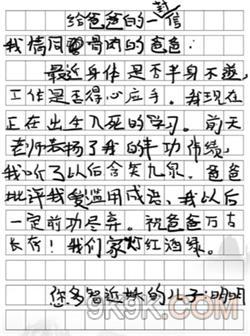 给爸爸的一封信
我情同骨肉的爸爸：
最近身体是否半身不遂，
工作是否得心应手。我现在
正在出生入死的学习。前天
老师表扬了我的丰功伟绩，
我听了以后含笑九泉。爸爸
批评我爱滥用成语，我以后
一定前功尽弃。祝爸爸万古
长存！我们家灯红酒绿。
您多智近妖的儿子：明明
9K9K.COM